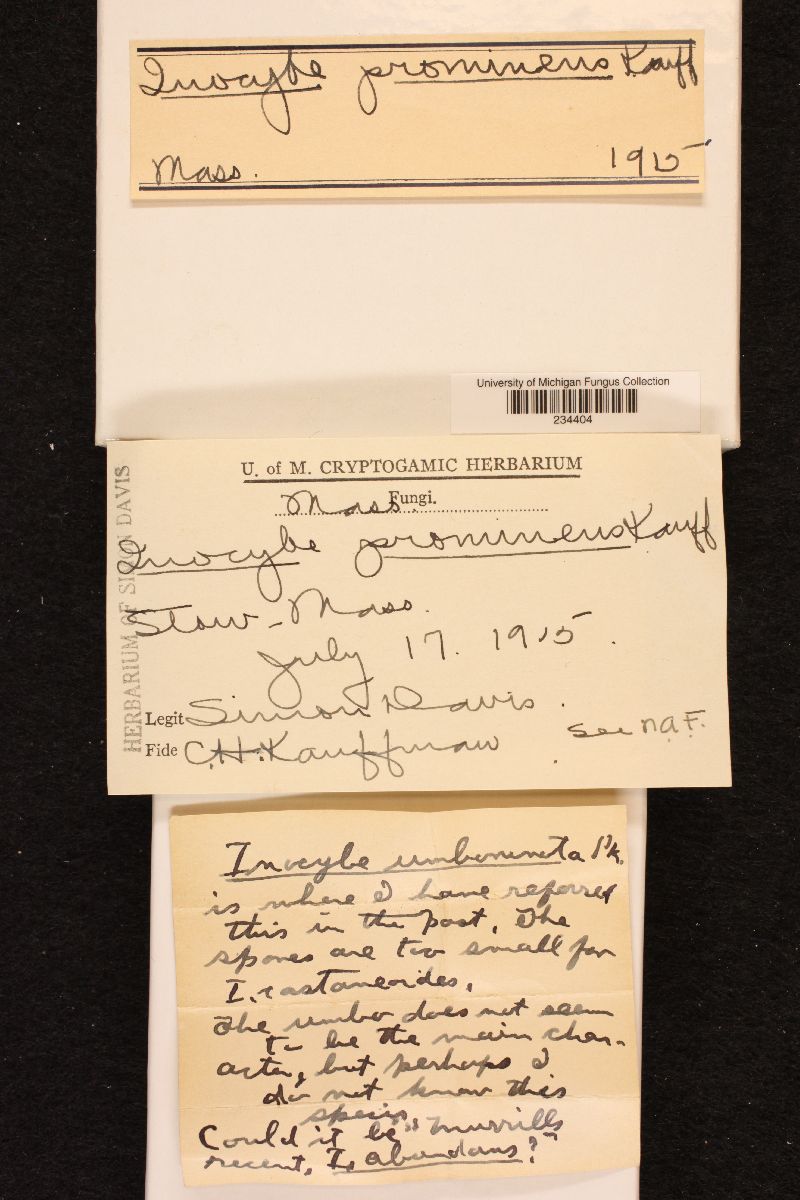 Inocybe prominens Kauff
Mass. 1915
University of Michigan Fungus Collection
234404
U. of M. CRYPTOGAMIC HERBARIUM
Fungi.
Mass.
Inocybe prominens Kauff
Stow - Mass.
July 17. 1915.
Legit Simon Davis.
Fide C.H. Kauffman see N.A.F.
HERBARIUM OF SIMON DAVIS
Inocybe umboninota Pk.
is where I have referred
this in the past. The
spones are too small for
I. castaneoides.
The umbo does not seem
to be the main char-
acter, but perhaps I
do not know this
species
Could it be "Murrills
recent, I. abundans?"